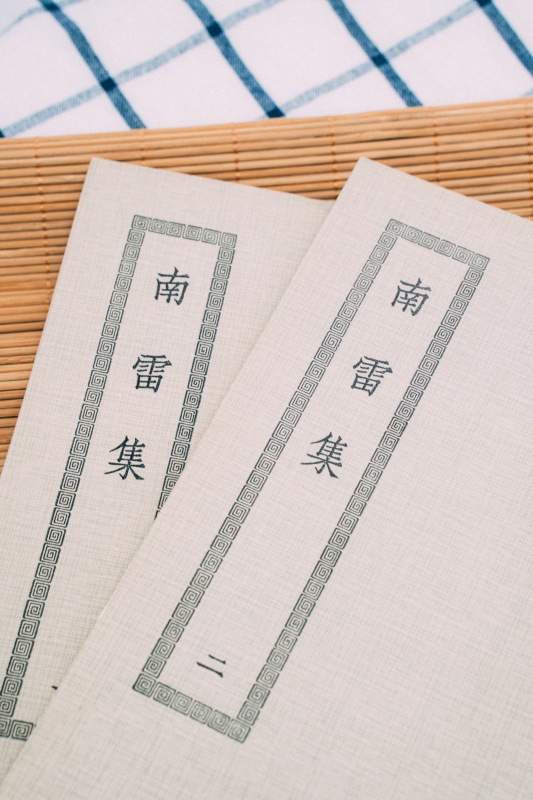 南雷集
南雷集
二